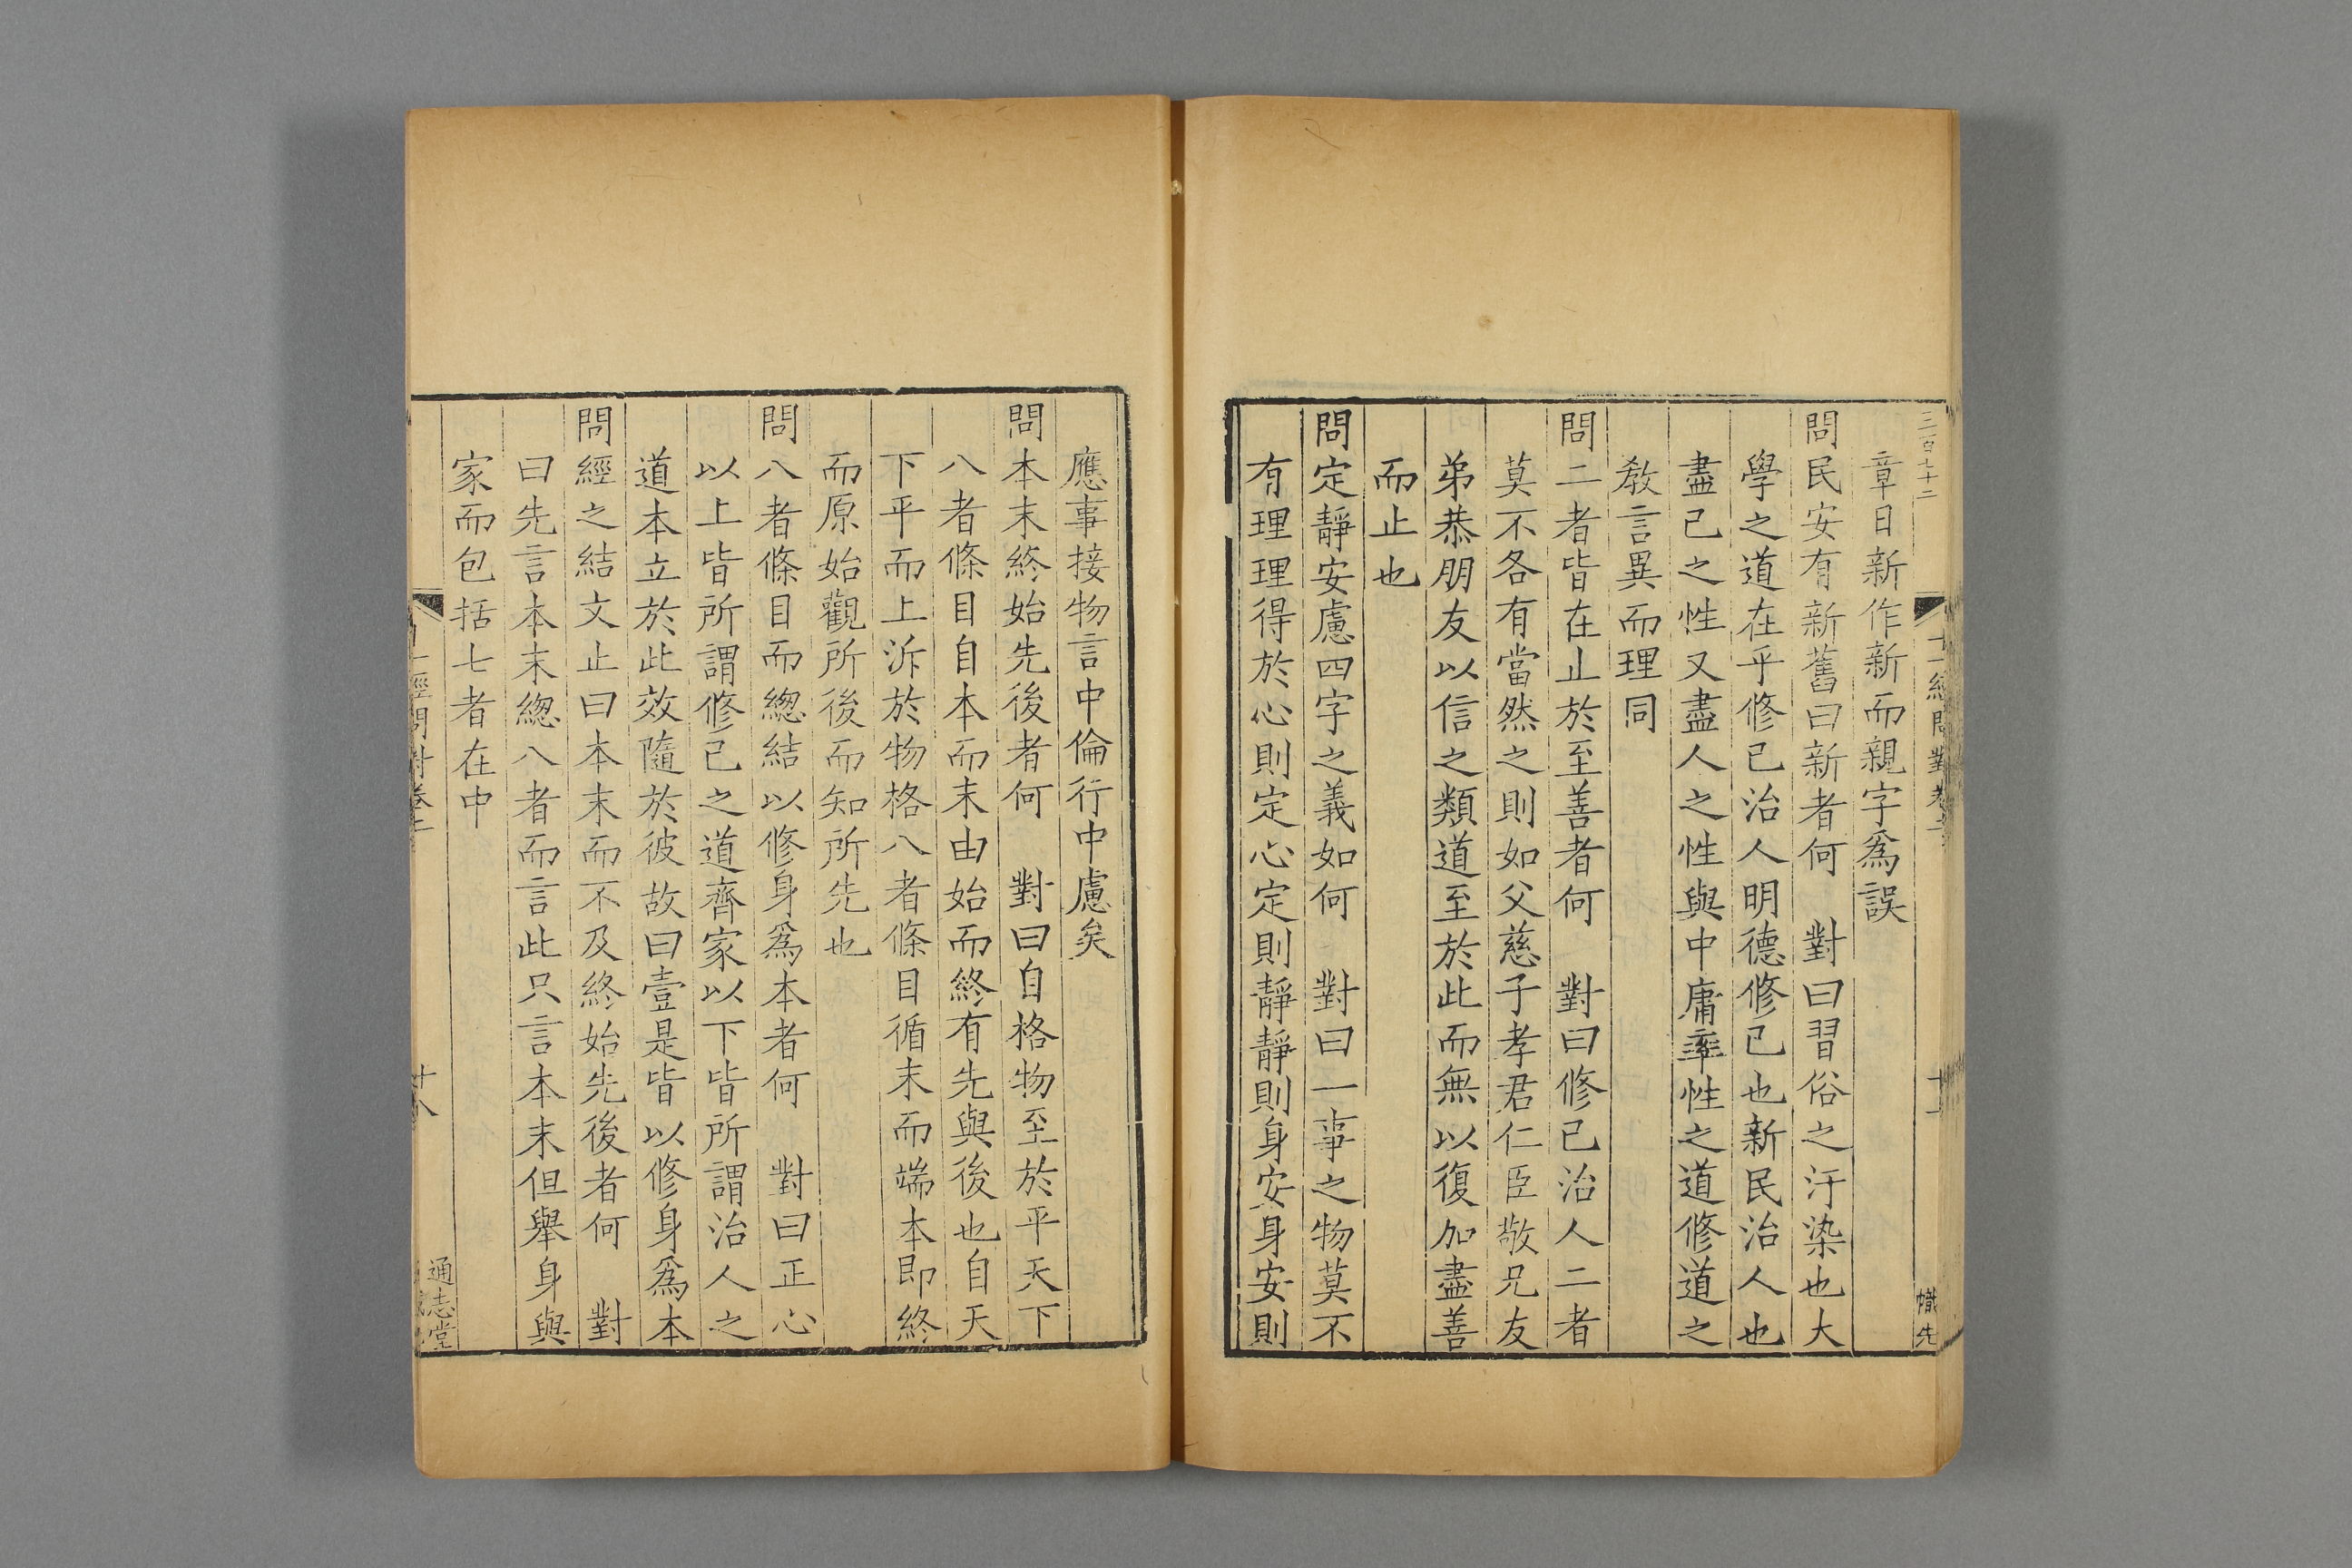 三百七十二
章日新作新而親字爲誤
問民安有新舊曰新者何　對曰習俗之汙染也大
學之道在乎修已治人明德修已也新民治人也
盡已之性又盡人之性與中庸率性之道修道之
教言異而理同
問二者皆在止於至善者何　對曰修已治人二者
莫不各有當然之則如父慈子孝君仁臣敬兄友
弟恭朋友以信之類道至於此而無以復加盡善
而止也
問定靜安慮四字之義如何　對曰一事之物莫不
有理理得於心則定心定則靜靜則身安身安則
應事接物言中倫行中慮矣
問本末終始先後者何　對曰自格物至於平天下
八者條目自本而末由始而終有先與後也自天
下平而上泝於物格八者條目循末而端本即終
而原始觀所後而知所先也
問八者條目而總結以修身爲本者何　對曰正心
以上皆所謂修已之道齊家以下皆所謂治人之
道本立於此效隨於彼故曰壹是皆以修身爲本
問經之結文止曰本末而不及終始先後者何　對
曰先言本末總八者而言此只言本末但舉身與
家而包括七者在中
通志堂